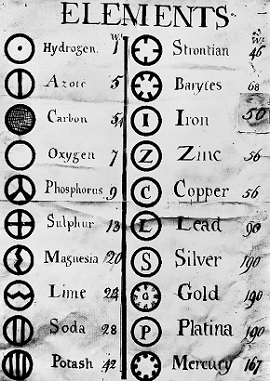 ELEMENTS
Hydrogen. 1
Azote 5
Carbon 54
Oxygen 7
Phosphorus 9
Sulphur 13
Magnesia 20
Lime 24
Soda 28
Potash 42
Strontian 46
Barytes 68
I Iron 50
Z Zinc 56
C Copper 56
L Lead 90
S Silver 190
G Gold 190
P Platina 190
Mercury 167